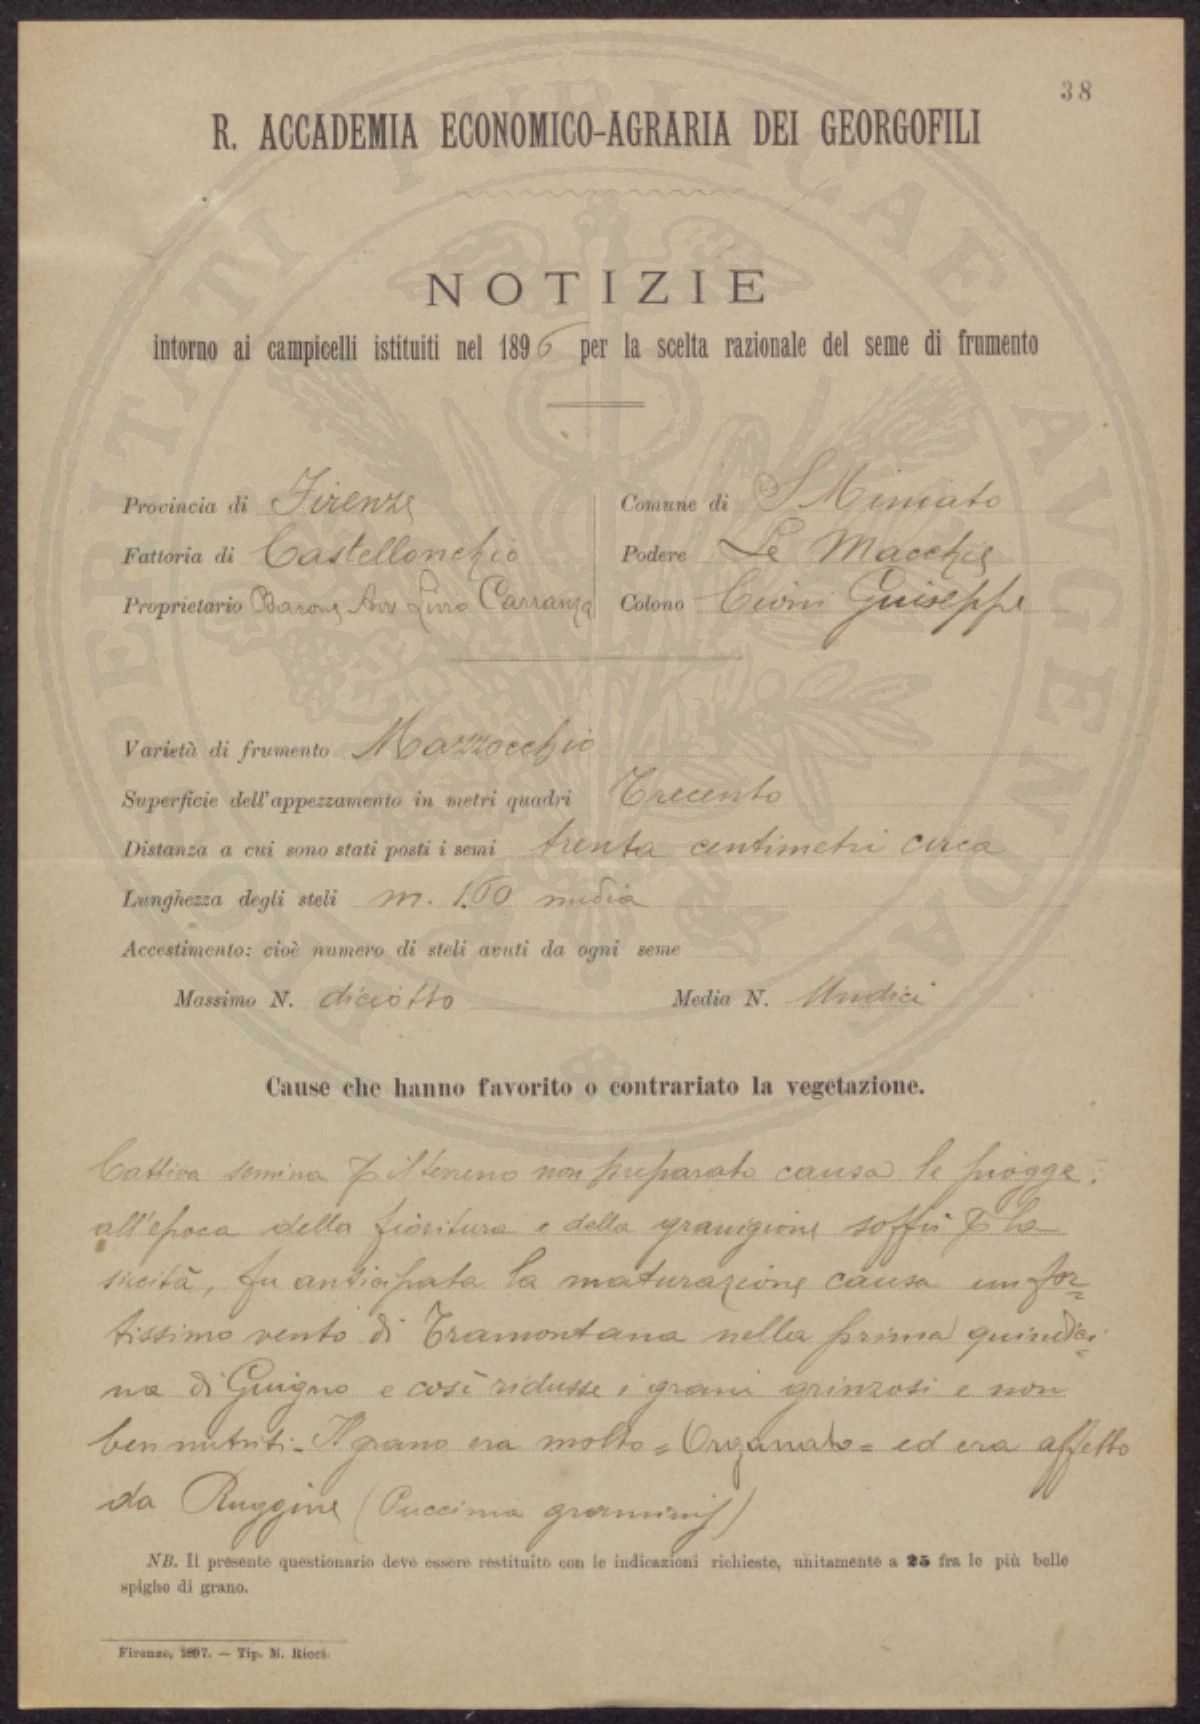 38
R. ACCADEMIA ECONOMICO-AGRARIA DEI GEORGOFILI
NOTIZIE
intorno ai campicelli istituiti nel 1896 per la scelta razionale del seme di frumento
Provincia di Firenze
Comune di S Miniato
Fattoria di Castellonchio
Podere Le Macchie
Proprietario Barone Avv Livio Carranza
Colono Cioni Guiseppe
Varietà di frumento Mazzocchio
Superficie dell'appezzamento in metri quadri Trecento
Distanza a cui sono stati posti i semi trenta centimetri circa
Lunghezza degli steli m. 1.60 media
Accestimento: cioè numero di steli avuti da ogni seme
Massimo N. diciotto Media N. Undici
Cause che hanno favorito o contrariato la vegetazione.
Cattiva semina p il terreno non preparato causa le piogge.
all'epoca della fioritura e della granigione soffrì p la
siccità, fu anticipata la maturazione causa un for=
tissimo vento di Tramontana nella prima quindici=
na di Guigno e così ridusse i grani grinzosi e non
ben nutriti. Il grano era molto = = ed era affetto
da Ruggine (Puccinia graminis)
NB. Il presente questionario deve essere restituito con le indicazioni richieste, unitamente a 25 fra le più belle
spighe di grano.
Firenze, 1897. — Tip. M. Ricci.
PROSPERITATI PUBLICAE AUGENDAE